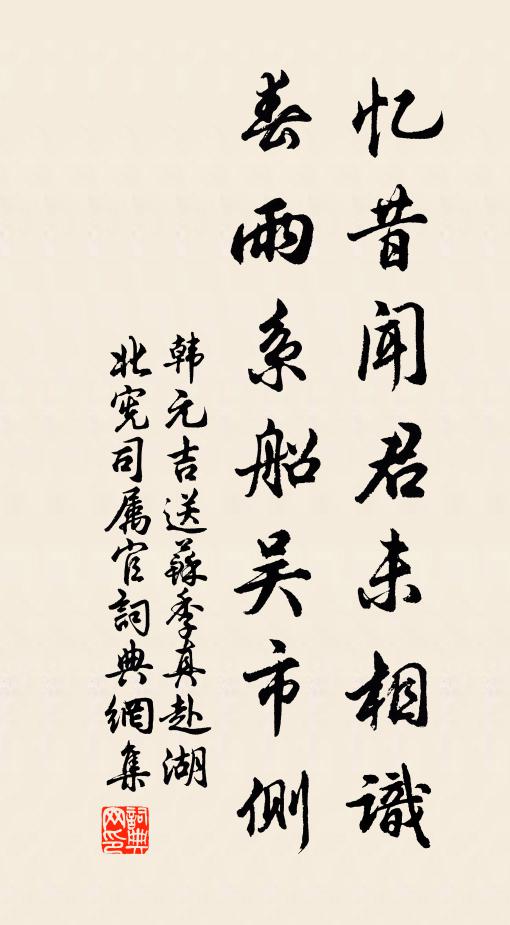 忆昔闻君未相識
春雨系船吴市側
韩元吉送蘇季真赴湖
北宪司属官詞典網集
詞典
网印